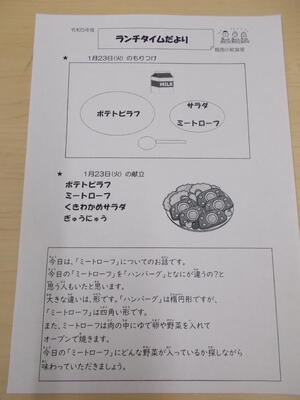 令和5年度
ランチタイムだより
★ 1月23日(火) のもりつけ
MILK
ポテトピラフ
サラダ
ミートローフ
★ 1月23日(火) の献立
ポテトピラフ
ミートローフ
くきわかめサラダ
ぎゅうにゅう
今日は、「ミートローフ」についてのお話です。
今日の「ミートローフ」を「ハンバーグ」となにが違うの?と
思う人もいたと思います。
大きな違いは、形です。「ハンバーグ」は楕円形ですが、
「ミートローフ」は四角い形です。
また、ミートローフは肉の中にゆで卵や野菜を入れて
オーブンで焼きます。
今日の「ミートローフ」にどんな野菜が入っているか探しながら
味わっていただきましょう。